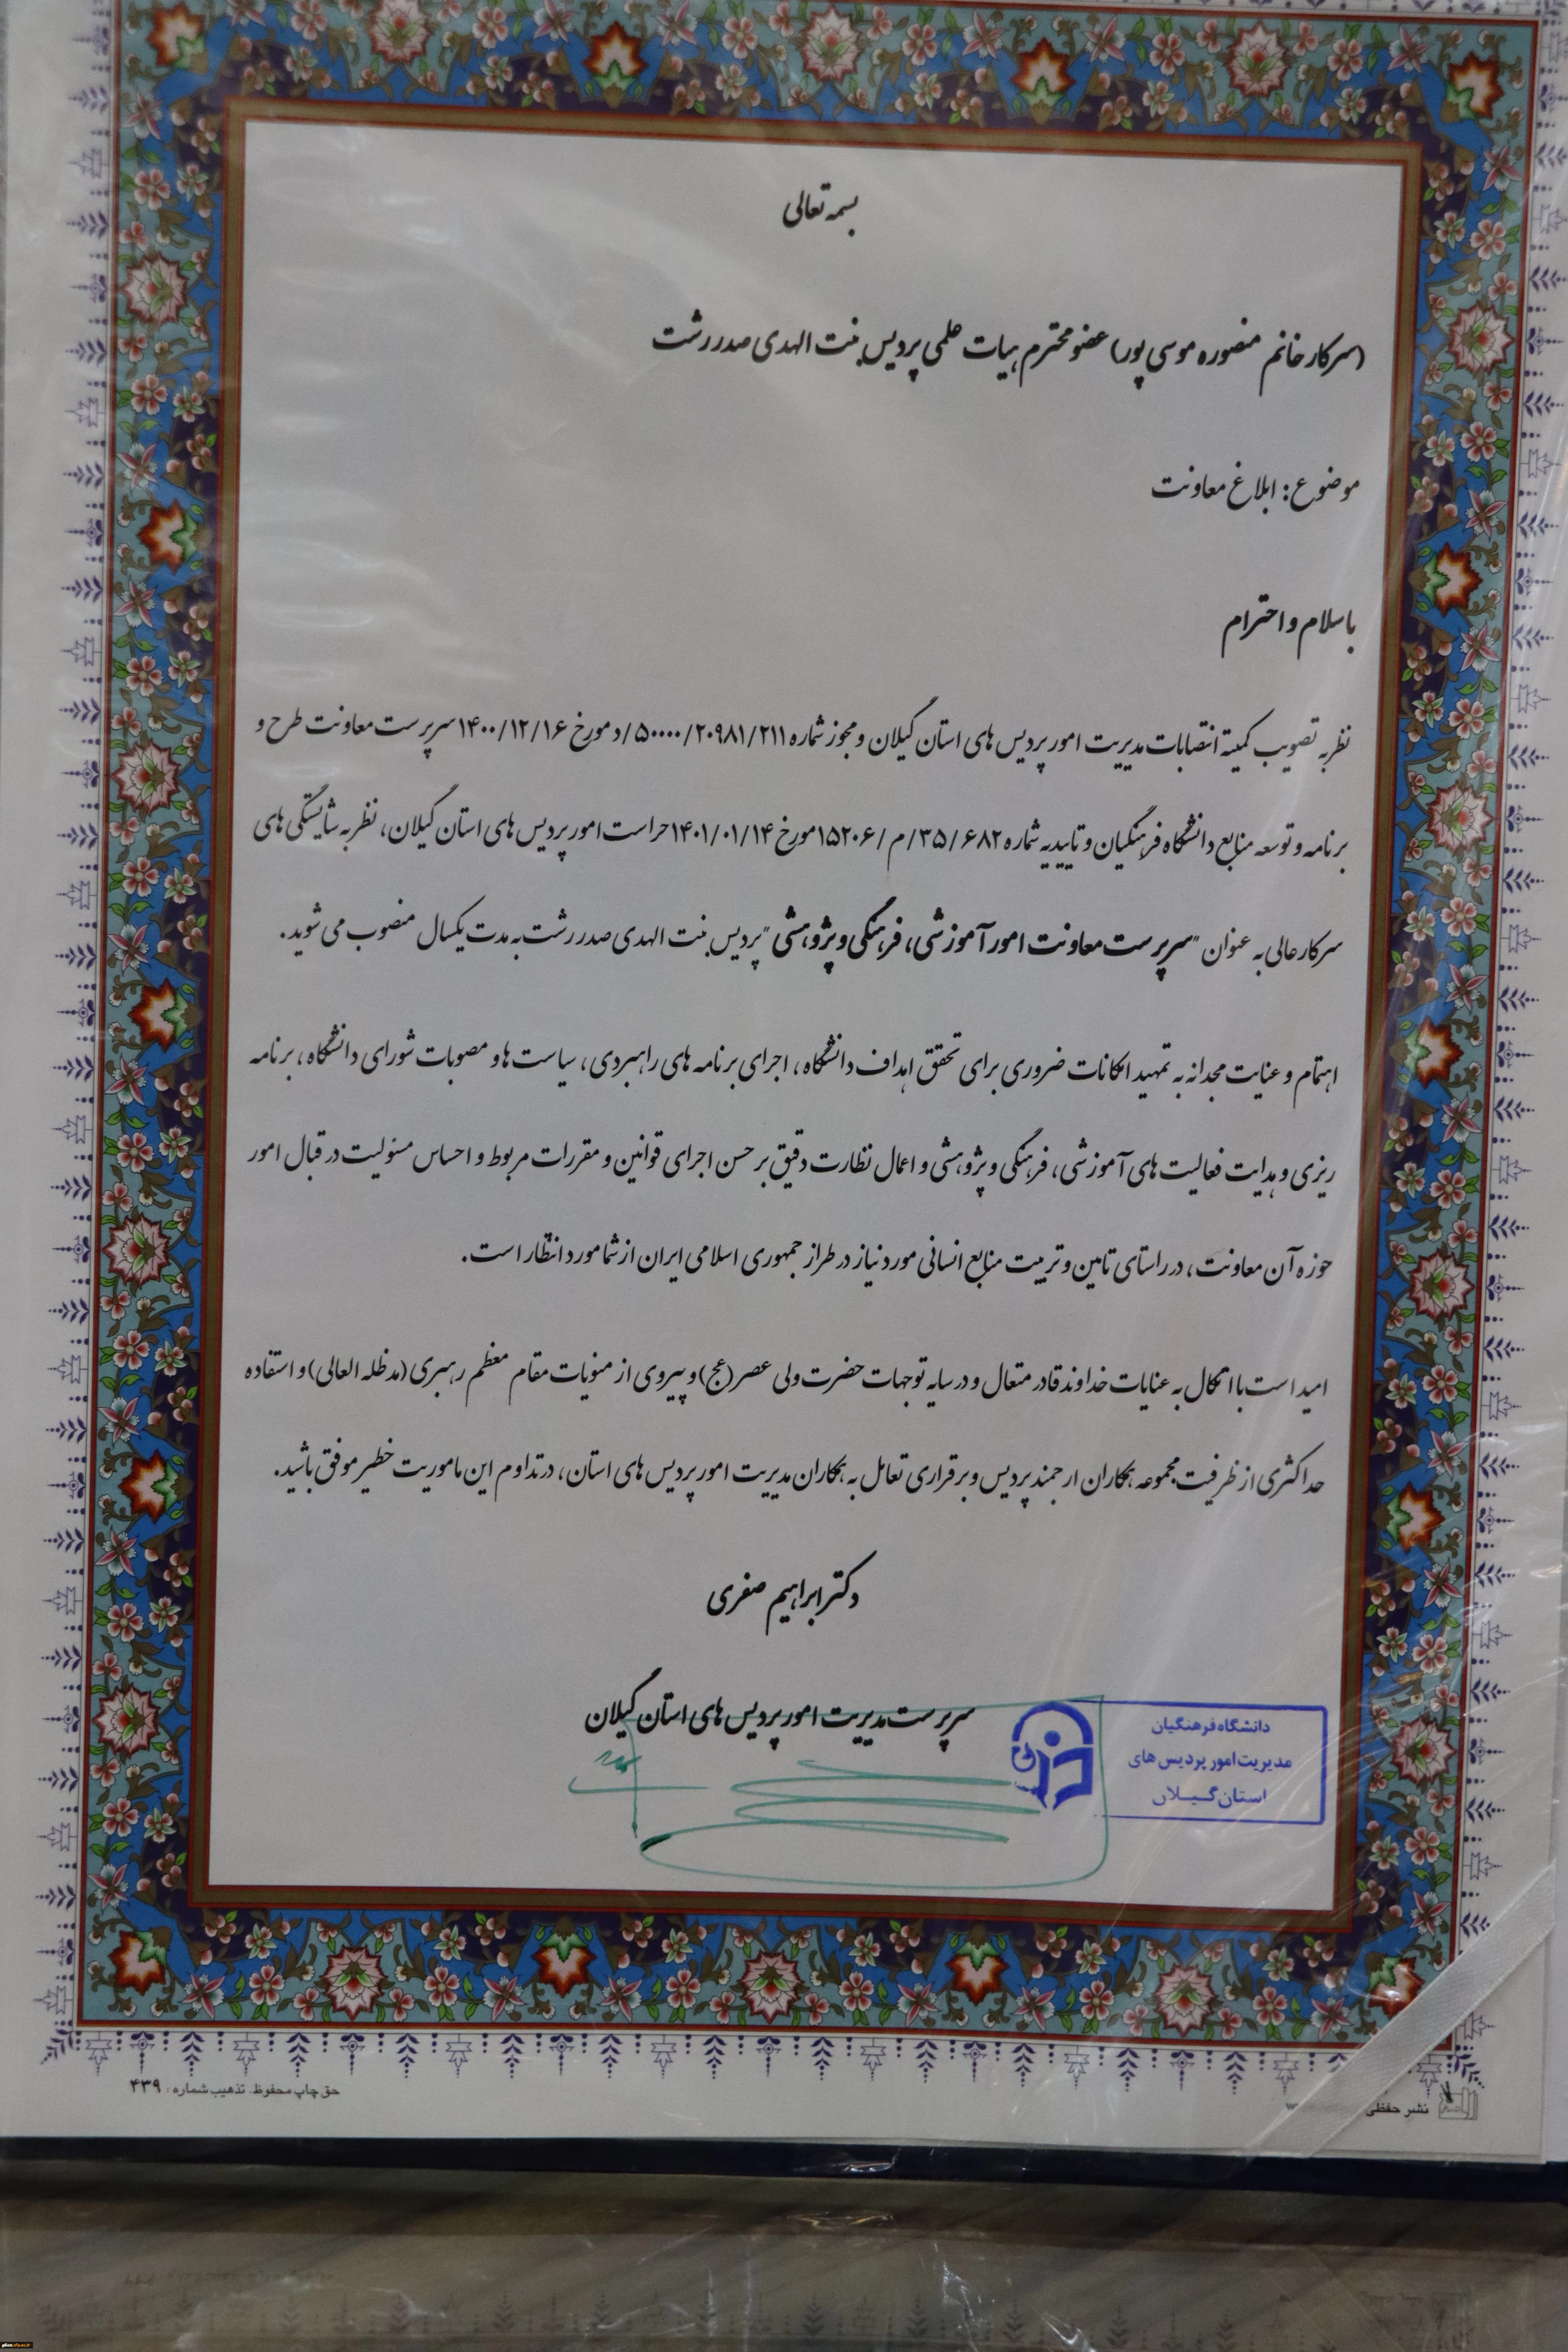 بسمه تعالی
(سرکار خانم منصوره موسی پور) عضو محترم هیات علمی پردیس بنت الهدی صدر رشت
موضوع: ابلاغ معاونت
باسلام و احترام
نظر به تصویب کمیته انتصابات مدیریت امور پردیس های استان گیلان و مجوز شماره ۵۰۰۰۰/۲۰۹۸۱/۲۱۱/د مورخ ۱۴۰۰/۱۲/۱۶ سرپرست معاونت طرح و
برنامه و توسعه منابع دانشگاه فرهنگیان و تاییدیه شماره ۱۵۲۰۶/م/۳۵/۶۸۲ مورخ ۱۴۰۱/۰۱/۱۴ حراست امور پردیس های استان گیلان، نظر به شایستگی های
سرکار عالی به عنوان "سرپرست معاونت امور آموزشی، فرهنگی و پژوهشی" پردیس بنت الهدی صدر رشت به مدت یکسال منصوب می شوید.
اهتمام و عنایت مجدانه به تمهید امکانات ضروری برای تحقق اهداف دانشگاه، اجرای برنامه های راهبردی، سیاست ها و مصوبات شورای دانشگاه، برنامه
ریزی و هدایت فعالیت های آموزشی، فرهنگی و پژوهشی و اعمال نظارت دقیق بر حسن اجرای قوانین و مقررات مربوط و احساس مسئولیت در قبال امور
حوزه آن معاونت، در راستای تامین و تربیت منابع انسانی مورد نیاز در طراز جمهوری اسلامی ایران از شما مورد انتظار است.
امید است با اتکال به عنایات خداوند قادر متعال و در سایه توجهات حضرت ولی عصر (عج) و پیروی از منویات مقام معظم رهبری (مدظله العالی) و استفاده
حداکثری از ظرفیت مجموعه همکاران ارجمند پردیس و برقراری تعامل به همکاران مدیریت امور پردیس های استان، در تداوم این ماموریت خطیر موفق باشید.
دکتر ابراهیم صفری
سرپرست مدیریت امور پردیس های استان گیلان
دانشگاه فرهنگیان
مدیریت امور پردیس های
استان گیلان
حق چاپ محفوظ. تذهیب شماره: ۴۳۹
نشر حفظی